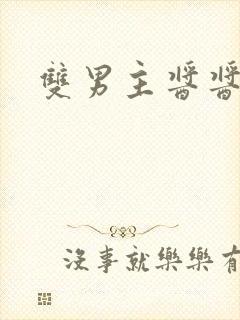 雙男主醬醬
沒事就樂樂有